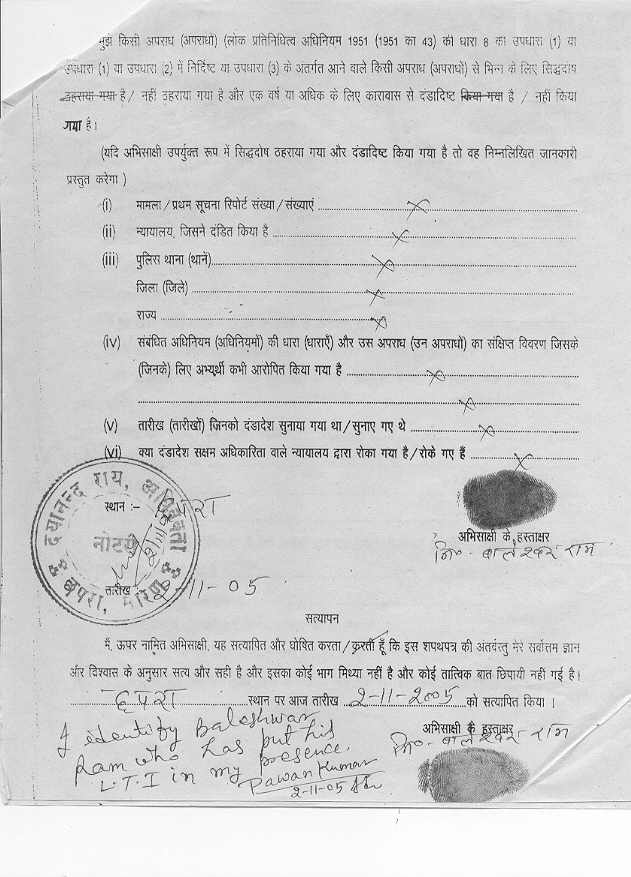 मुझे किसी अपराध (अपराधों) (लोक प्रतिनिधित्व अधिनियम 1951 (1951 का 43) की धारा 8 का उपधारा (1) या
उपधारा (1) या उपधारा (2) में निर्दिष्ट या उपधारा (3) के अंतर्गत आने वाले किसी अपराध (अपराधों) से भिन्न के लिए सिद्धदोष
ठहराया गया है / नहीं ठहराया गया है और एक वर्ष या अधिक के लिए कारावास से दंडादिष्ट किया गया है / नहीं किया
गया है।
(यदि अभिसाक्षी उपर्युक्त रूप में सिद्धदोष ठहराया गया और दंडादिष्ट किया गया है तो वह निम्नलिखित जानकारी
प्रस्तुत करेगा )
(i) मामला / प्रथम सूचना रिपोर्ट संख्या / संख्याएं
(ii) न्यायालय, जिसने दंडित किया है
(iii) पुलिस थाना (थानें)
जिला (जिले)
राज्य
(iv) संबधित अधिनियम (अधिनियमों) की धारा (धाराएँ) और उस अपराध (उन अपराधों) का संक्षिप्त विवरण जिसके
(जिनके) लिए अभ्यर्थी कभी आरोपित किया गया है
(v) तारीख (तारीखों) जिनको दंडादेश सुनाया गया था / सुनाए गए थे
(vi) क्या दंडादेश सक्षम अधिकारिता वाले न्यायालय द्वारा रोका गया है / रोके गए हैं
दयानन्द राय, अधिवक्ता
नोटरी
छपरा, सारण
स्थान :- छपरा
अभिसाक्षी के हस्ताक्षर
नि० - बालेश्वर राम
तारीख :- 2-11-05
सत्यापन
मैं, ऊपर नामित अभिसाक्षी, यह सत्यापित और घोषित करता / करती हूँ कि इस शपथपत्र की अंतर्वस्तु मेरे सर्वोतम ज्ञान
और विश्वास के अनुसार सत्य और सही है और इसका कोई भाग मिथ्या नहीं है और कोई तात्विक बात छिपायी नहीं गई है।
छपरा स्थान पर आज तारीख 2-11-2005 को सत्यापित किया ।
अभिसाक्षी के हस्ताक्षर
नि० - बालेश्वर राम
I identify Baleshwar
Ram who has put his
L.T.I in my presence.
Pawan Kumar
2-11-05